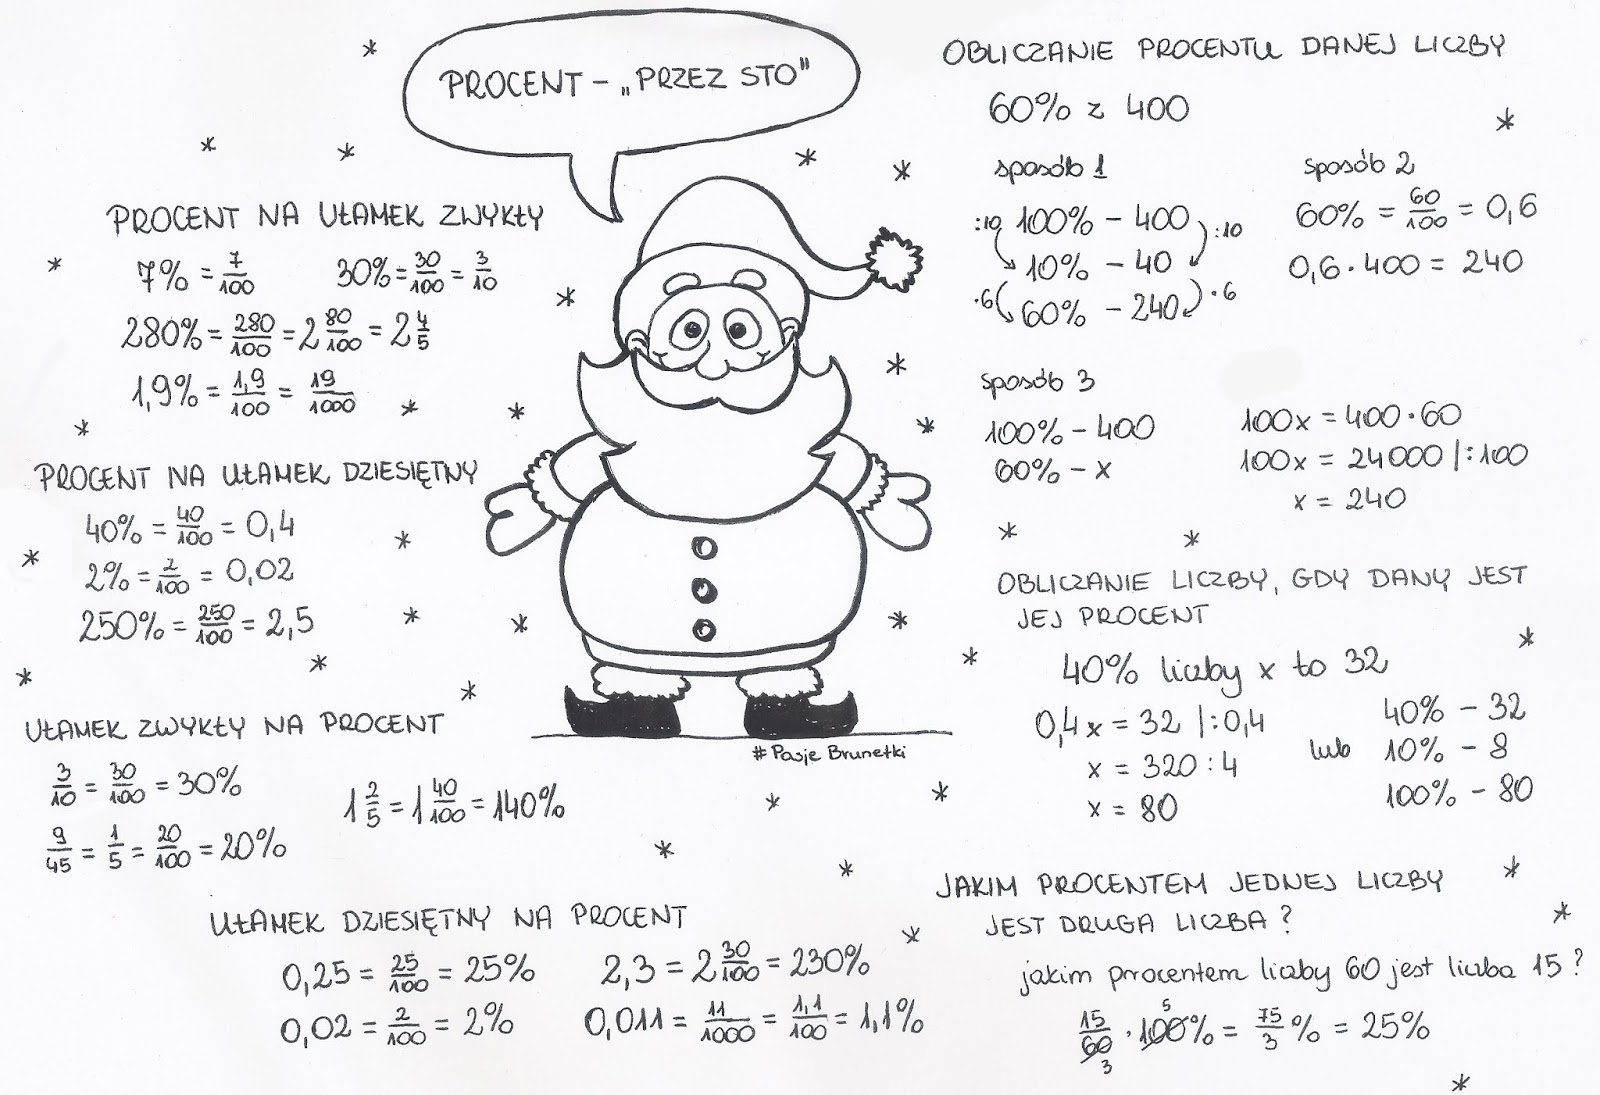 PROCENT – „PRZEZ STO"
PROCENT NA UŁAMEK ZWYKŁY
7% = 7/100 30% = 30/100 = 3/10
280% = 280/100 = 2 80/100 = 2 4/5
1,9% = 1,9/100 = 19/1000
PROCENT NA UŁAMEK DZIESIĘTNY
40% = 40/100 = 0,4
2% = 2/100 = 0,02
250% = 250/100 = 2,5
UŁAMEK ZWYKŁY NA PROCENT
3/10 = 30/100 = 30%
1 2/5 = 1 40/100 = 140%
9/45 = 1/5 = 20/100 = 20%
UŁAMEK DZIESIĘTNY NA PROCENT
0,25 = 25/100 = 25% 2,3 = 2 30/100 = 230%
0,02 = 2/100 = 2% 0,011 = 11/1000 = 1,1/100 = 1,1%
# Pasje Brunetki
OBLICZANIE PROCENTU DANEJ LICZBY
60% z 400
sposób 1
:10 100% – 400 :10
10% – 40
·6 60% – 240 ·6
sposób 2
60% = 60/100 = 0,6
0,6 · 400 = 240
sposób 3
100% – 400
60% – x
100x = 400·60
100x = 24000 |:100
x = 240
OBLICZANIE LICZBY, GDY DANY JEST
JEJ PROCENT
40% liczby x to 32
0,4x = 32 |:0,4
x = 320 : 4
x = 80
lub
40% – 32
10% – 8
100% – 80
JAKIM PROCENTEM JEDNEJ LICZBY
JEST DRUGA LICZBA?
jakim procentem liczby 60 jest liczba 15?
5
15/60 · 100% = 75/3 % = 25%
3